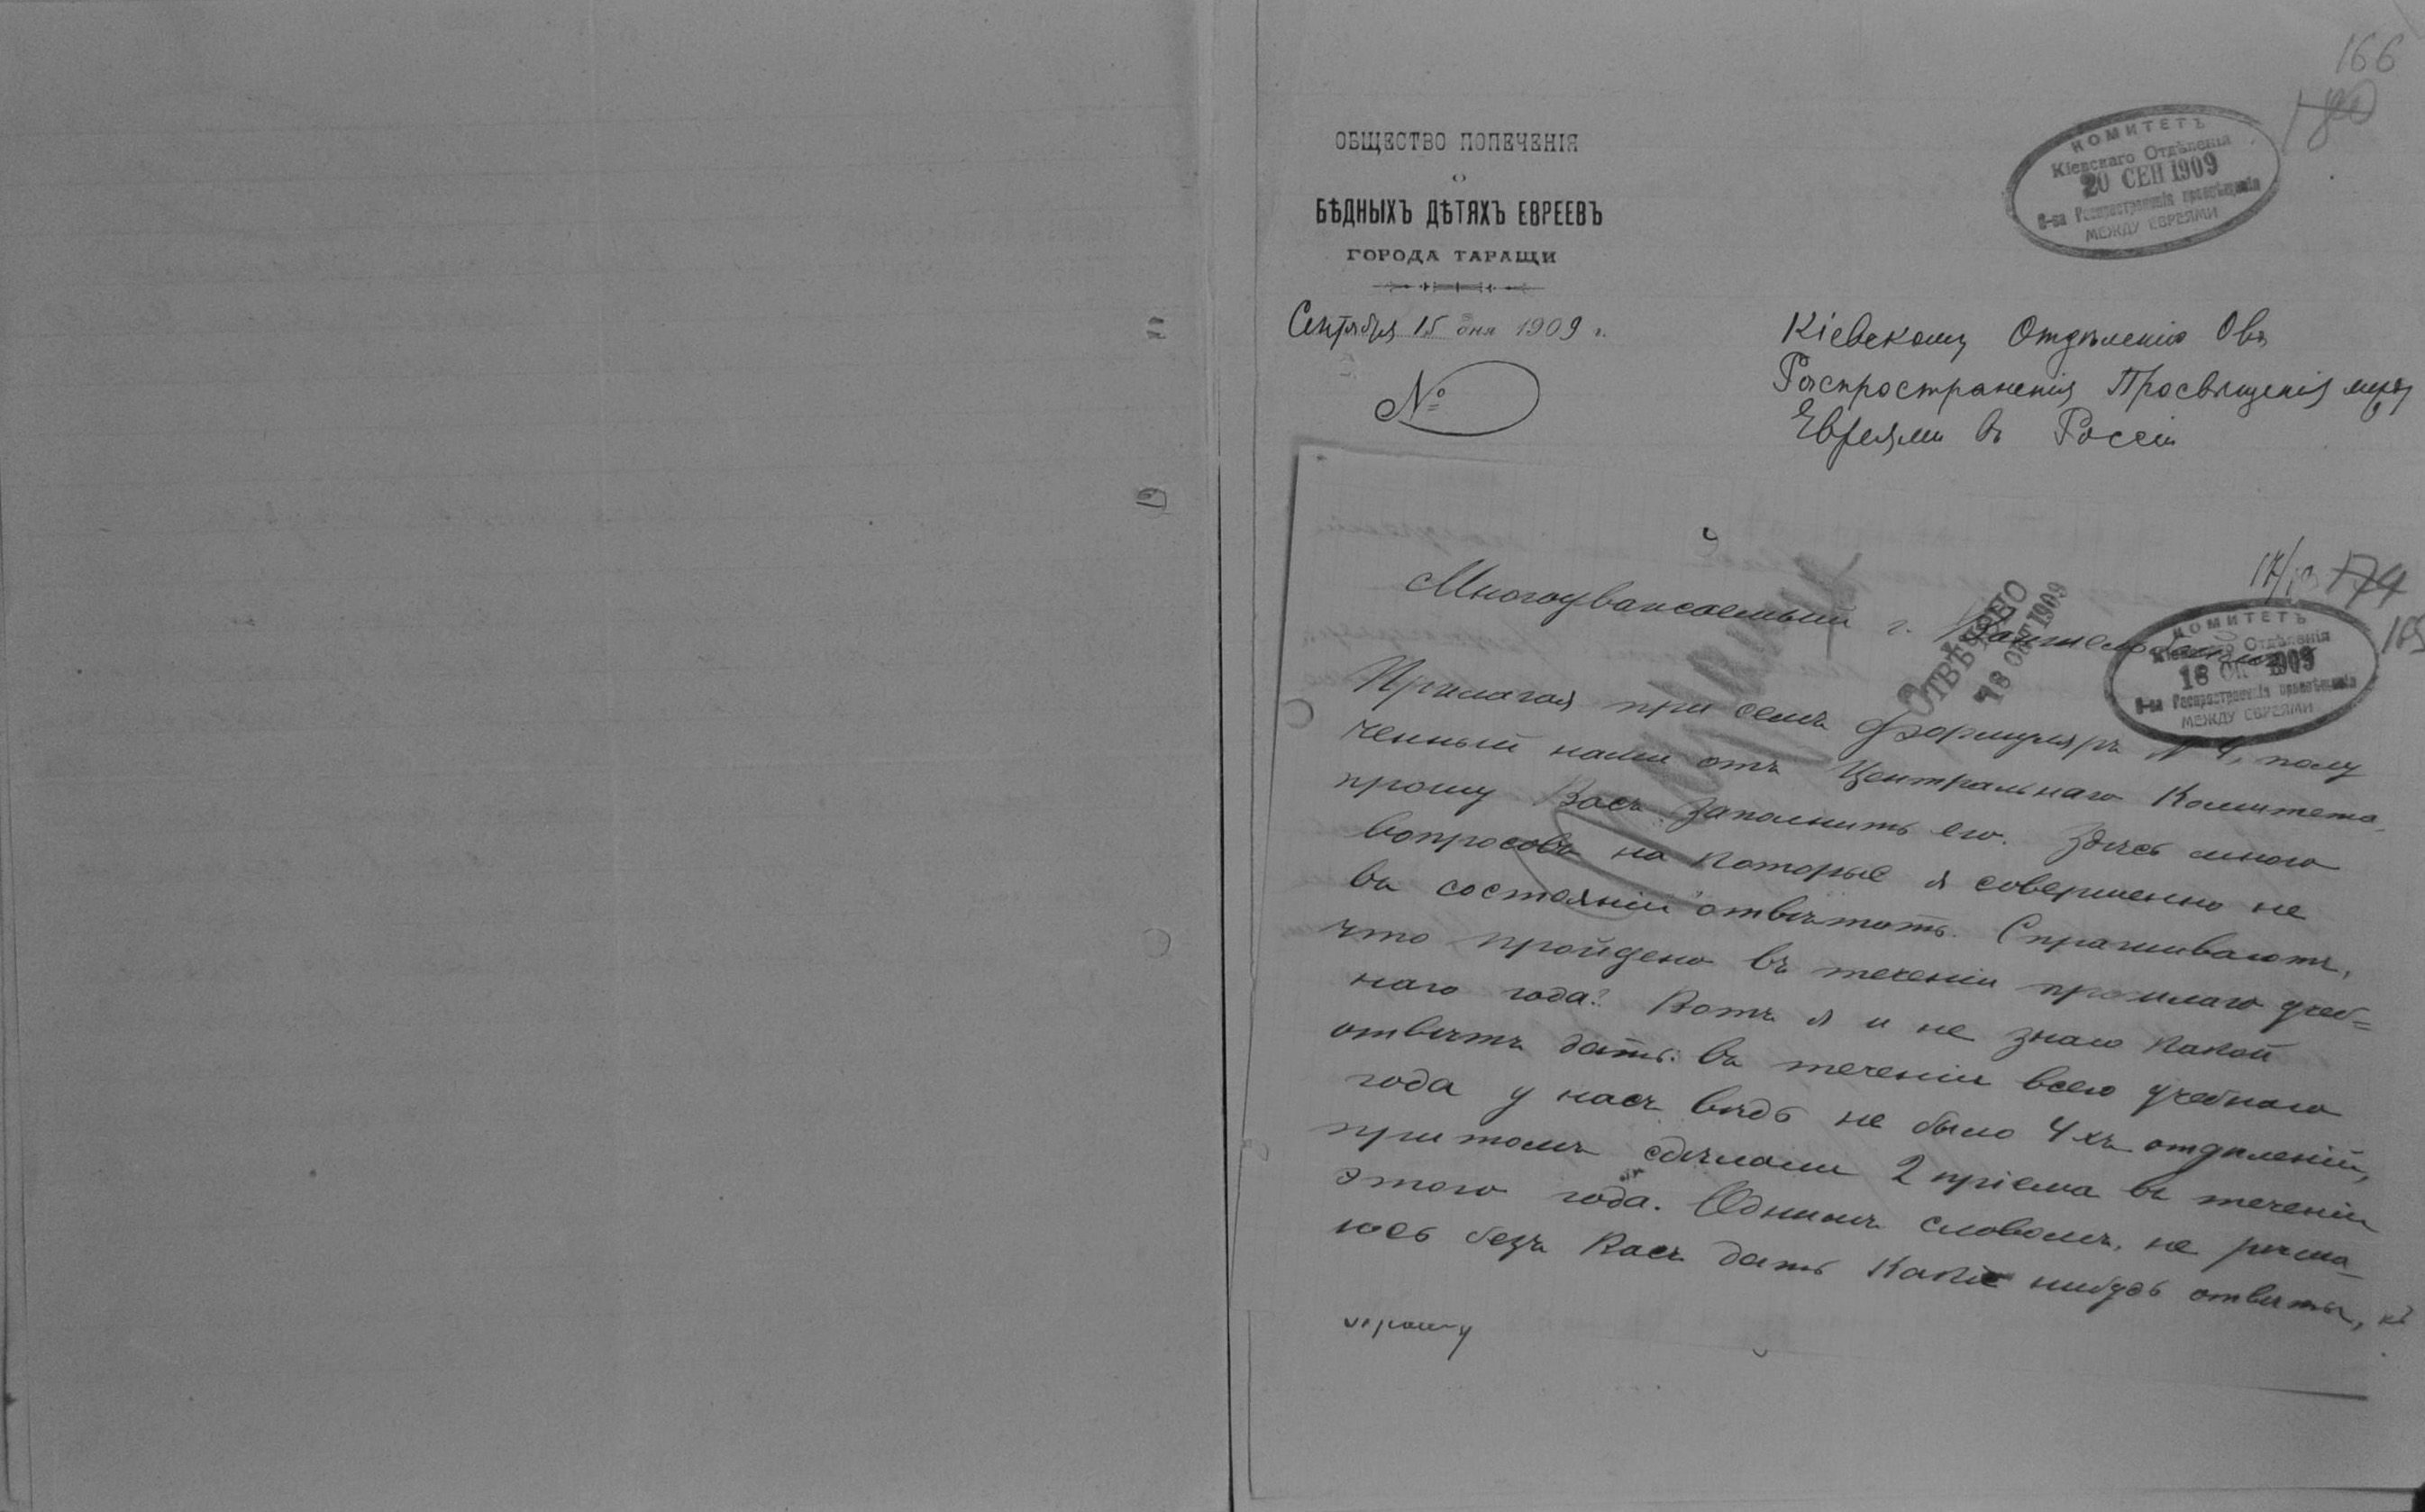 166
180
ОБЩЕСТВО ПОПЕЧЕНІЯ
О
БѢДНЫХЪ ДѢТЯХЪ ЕВРЕЕВЪ
ГОРОДА ТАРАЩИ
КОМИТЕТЪ
Кіевскаго Отдѣленія
20 СЕН 1909
О-ва Распространенія просвѣщенія
МЕЖДУ ЕВРЕЯМИ
Сентября 15 дня 1909 г.
№
Кіевскому Отдѣленію Ова
Распространенія Просвѣщенія между
Евреями въ Россіи
174
КОМИТЕТЪ
Кіевскаго Отдѣленія
18 ОКТ 1909
О-ва Распространенія просвѣщенія
МЕЖДУ ЕВРЕЯМИ
ОТВѢЧЕНО
18 ОКТ 1909
Многоуважаемый г.
Прилагая при семъ формуляръ № 4, полу
ченный нами отъ Центральнаго Комитета,
прошу Васъ заполнить его. Здѣсь много
вопросовъ на которые я совершенно не
въ состояніи отвѣтить. Спрашиваютъ,
что пройдено въ теченіи прошлаго учеб=
наго года? Вотъ я и не знаю какой
отвѣтъ дать: въ теченіи всего учебнаго
года у насъ вѣдь не было 4хъ отдѣленій,
притомъ сдѣлали 2 пріема въ теченіи
этого года. Однимъ словомъ, не рѣша
юсь безъ Васъ дать какіе нибудь отвѣты,
прошу